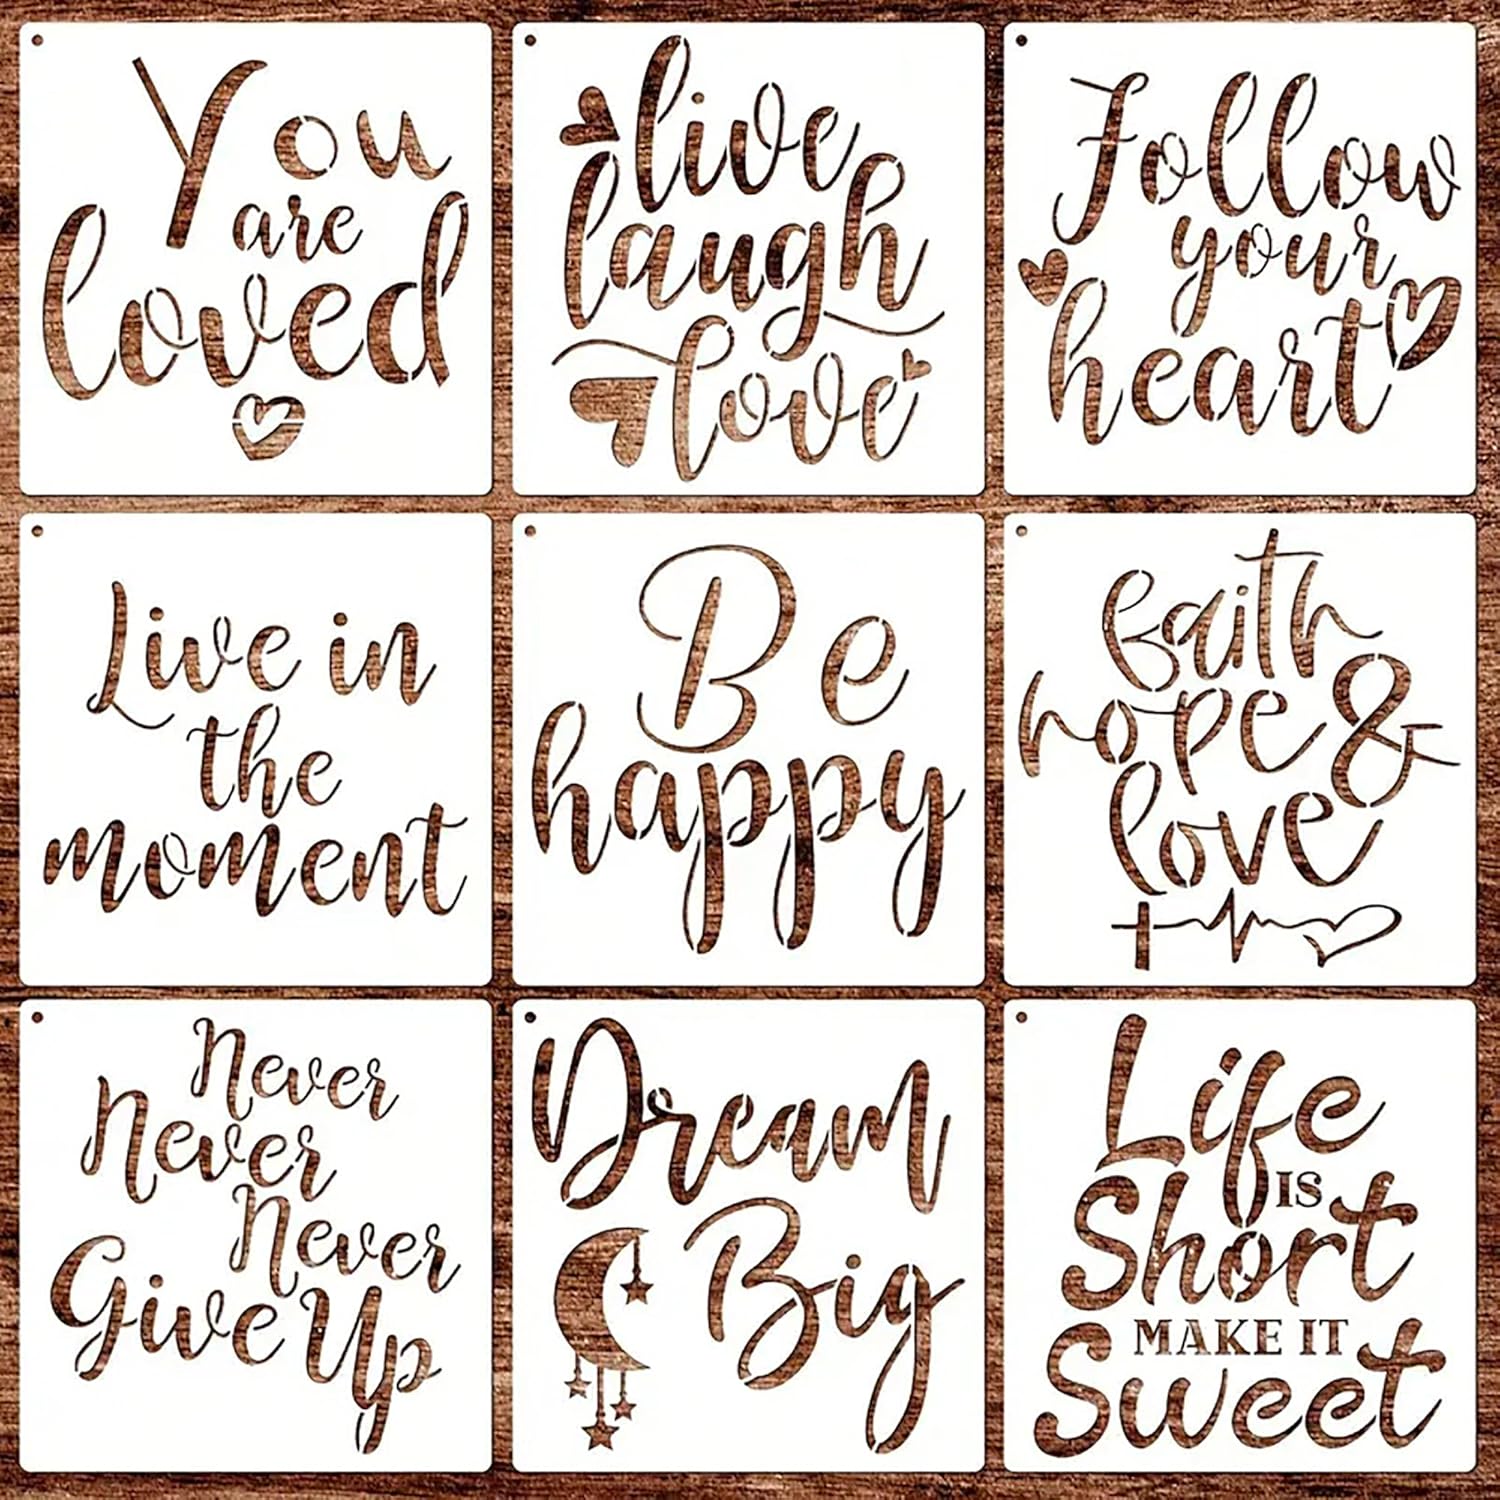 You
are
loved
live
laugh
love
Follow
your
heart
Live in
the
moment
Be
happy
faith
hope &
love
Never
Never
Never
Give Up
Dream
Big
Life
IS
Short
MAKE IT
Sweet